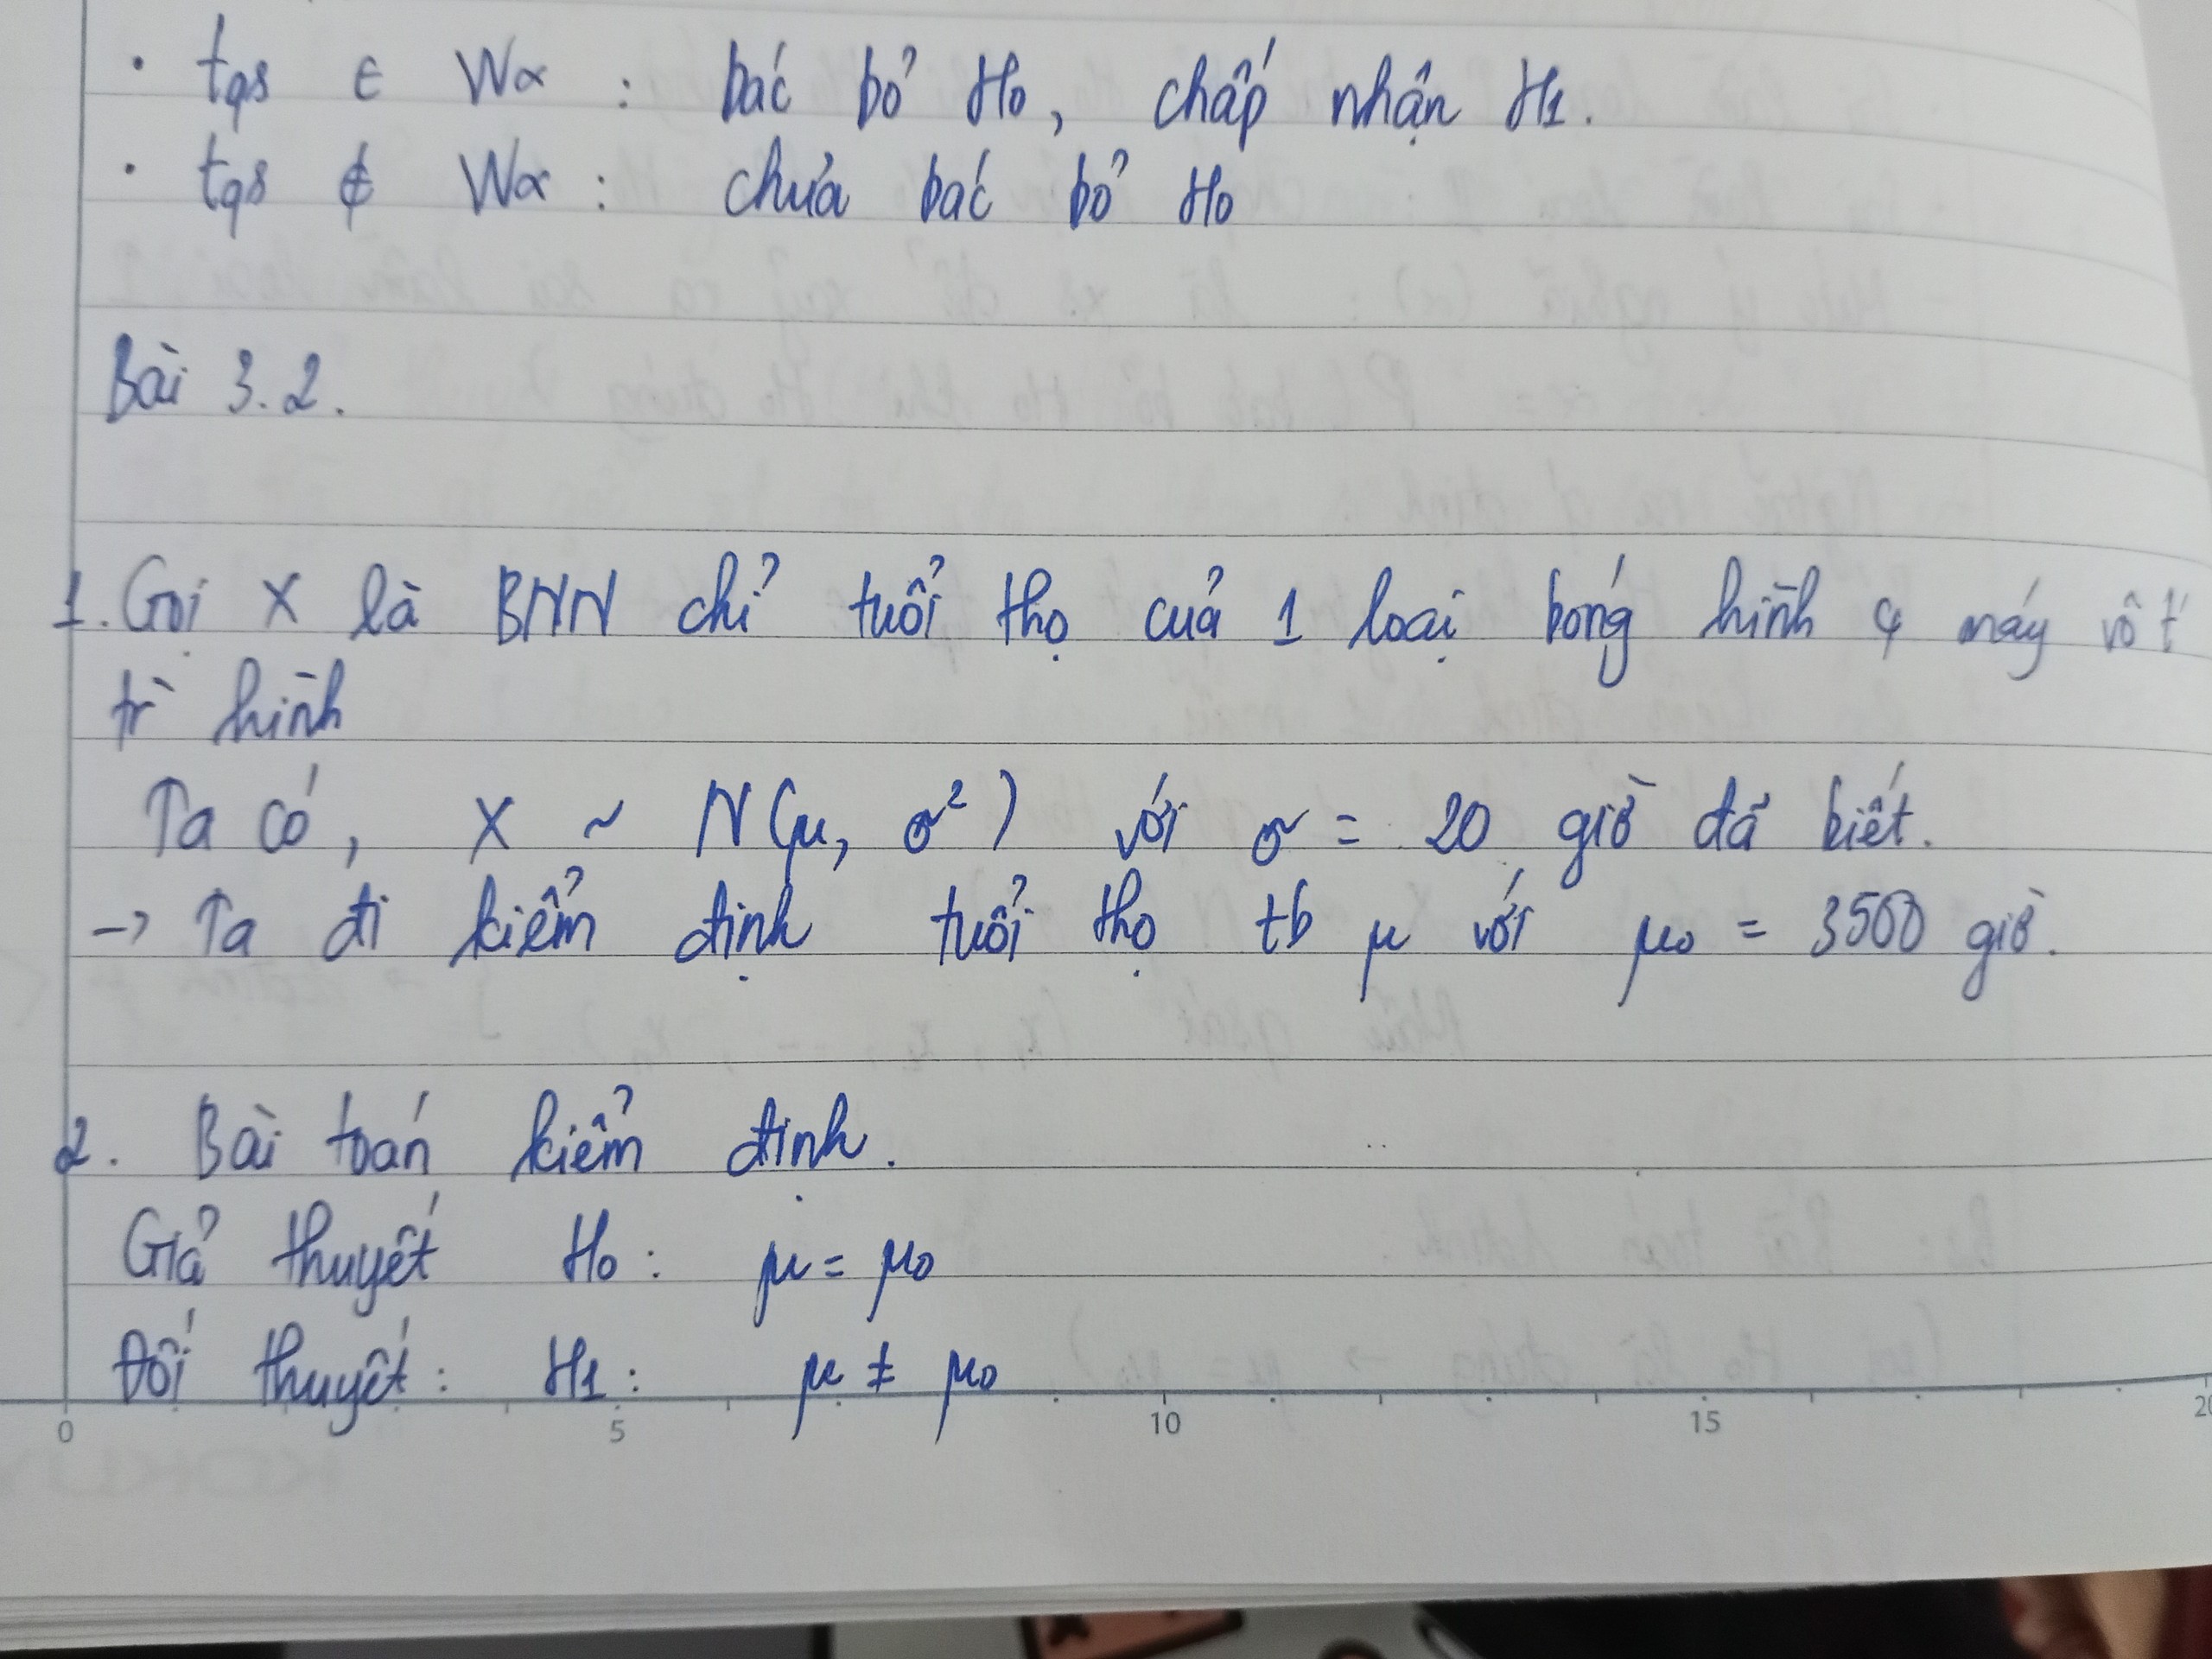 • tqs ∈ Wα : bác bỏ H0, chấp nhận H1.
• tqs ∉ Wα : chưa bác bỏ H0
Bài 3.2.
1. Gọi X là BNN chỉ tuổi thọ của 1 loại bóng hình ç máy vô t
trì hình
Ta có, X ~ N(μ, σ²) với σ = 20 giờ đã biết.
→ Ta đi kiểm định tuổi thọ tb μ với μ0 = 3500 giờ.
2. Bài toán kiểm định.
Giả thuyết H0 : μ = μ0
Đối thuyết : H1 : μ ≠ μ0
0 5 10 15 20